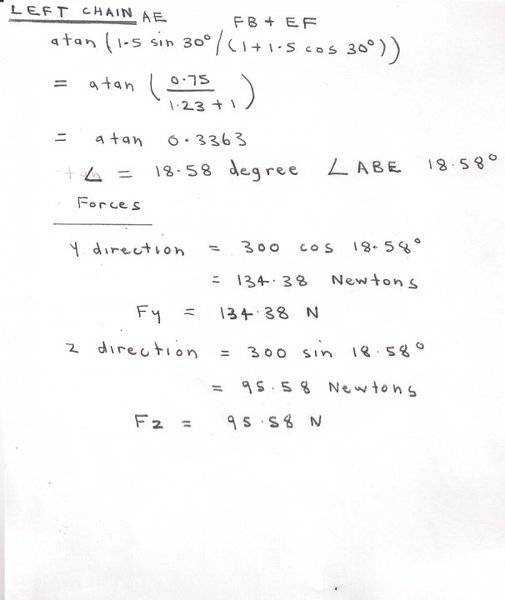 LEFT CHAIN AE FB + EF
atan (1.5 sin 30° / (1 + 1.5 cos 30°))
= atan (0.75 / 1.23 + 1)
= atan 0.3363
+ ∠ = 18.58 degree ∠ ABE 18.58°
Forces
Y direction = 300 cos 18.58°
= 134.38 Newtons
Fy = 134.38 N
Z direction = 300 sin 18.58°
= 95.58 Newtons
Fz = 95.58 N